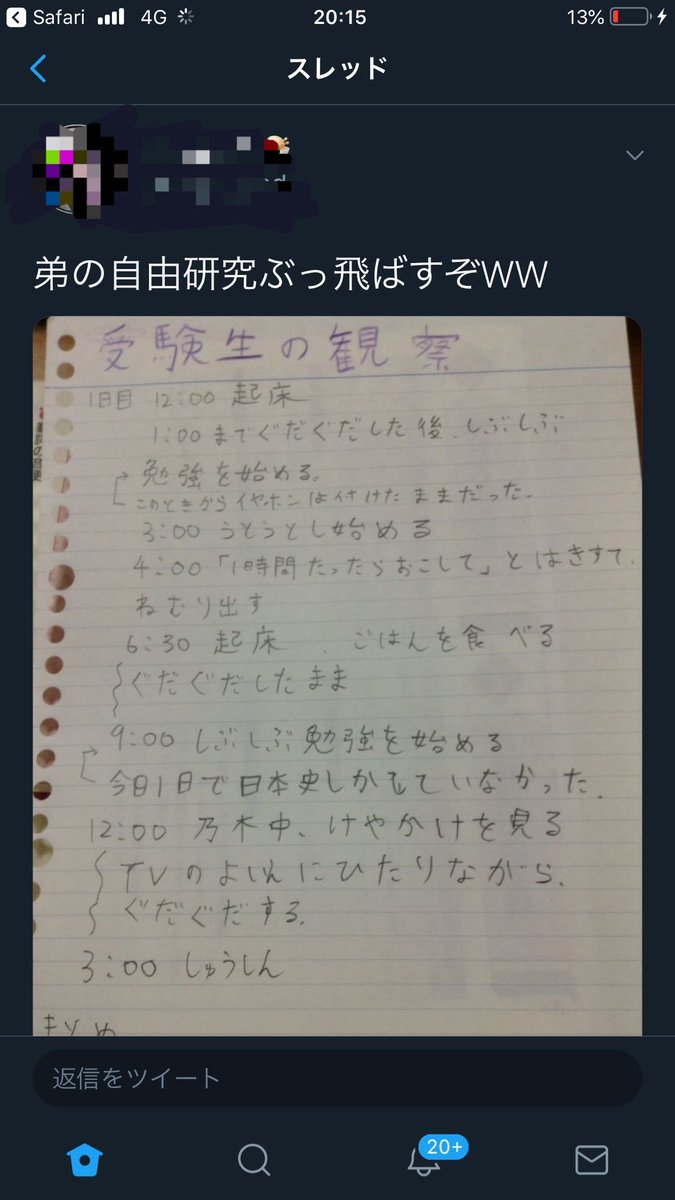 Safari 4G 20:15 13%
スレッド
弟の自由研究ぶっ飛ばすぞWW
受験生の観察
1日目 12:00 起床
1:00 までぐだぐだした後、しぶしぶ
勉強を始める。
このときからイヤホンは付けたままだった。
3:00 うとうとし始める
4:00 「1時間たったらおこして」とはきすて、
ねむり出す
6:30 起床 、ごはんを食べる
ぐだぐだしたまま
9:00 しぶしぶ勉強を始める
今日1日で日本史しかしていなかった。
12:00 乃木中、けやかけを見る
TVのよいんにひたりながら、
ぐだぐだする。
3:00 しゅうしん
まとめ
返信をツイート
20+